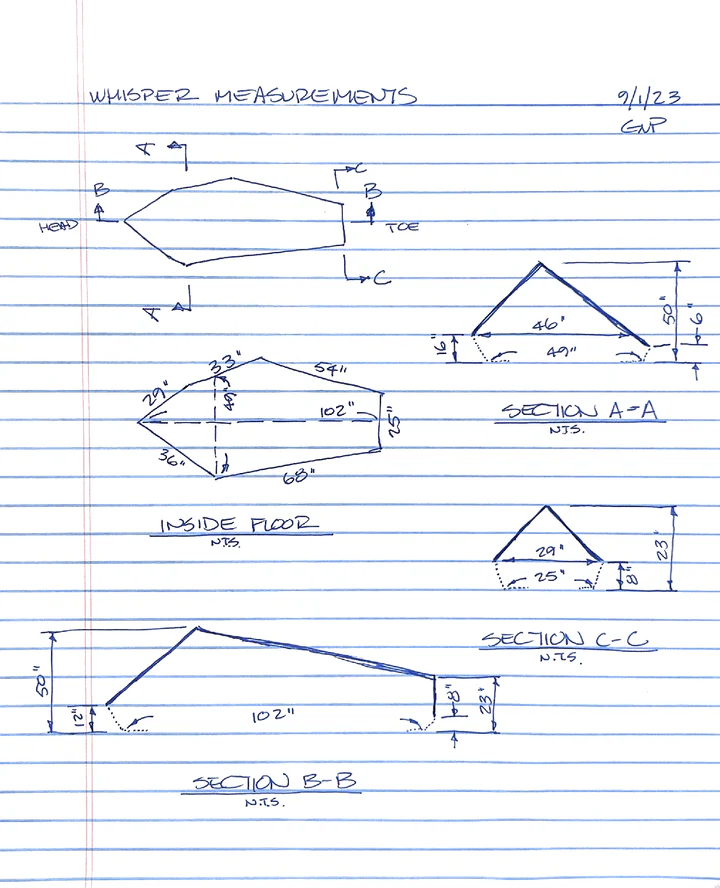 WHISPER MEASUREMENTS 9/1/23
GNP
A
C
B B
HEAD TOE
C
A
46"
49"
16"
50"
6"
SECTION A-A
N.T.S.
33"
54"
29"
49"
102"
25"
36"
68"
INSIDE FLOOR
N.T.S.
29"
25"
8"
23"
SECTION C-C
N.T.S.
50"
12"
102"
8"
23"
SECTION B-B
N.T.S.